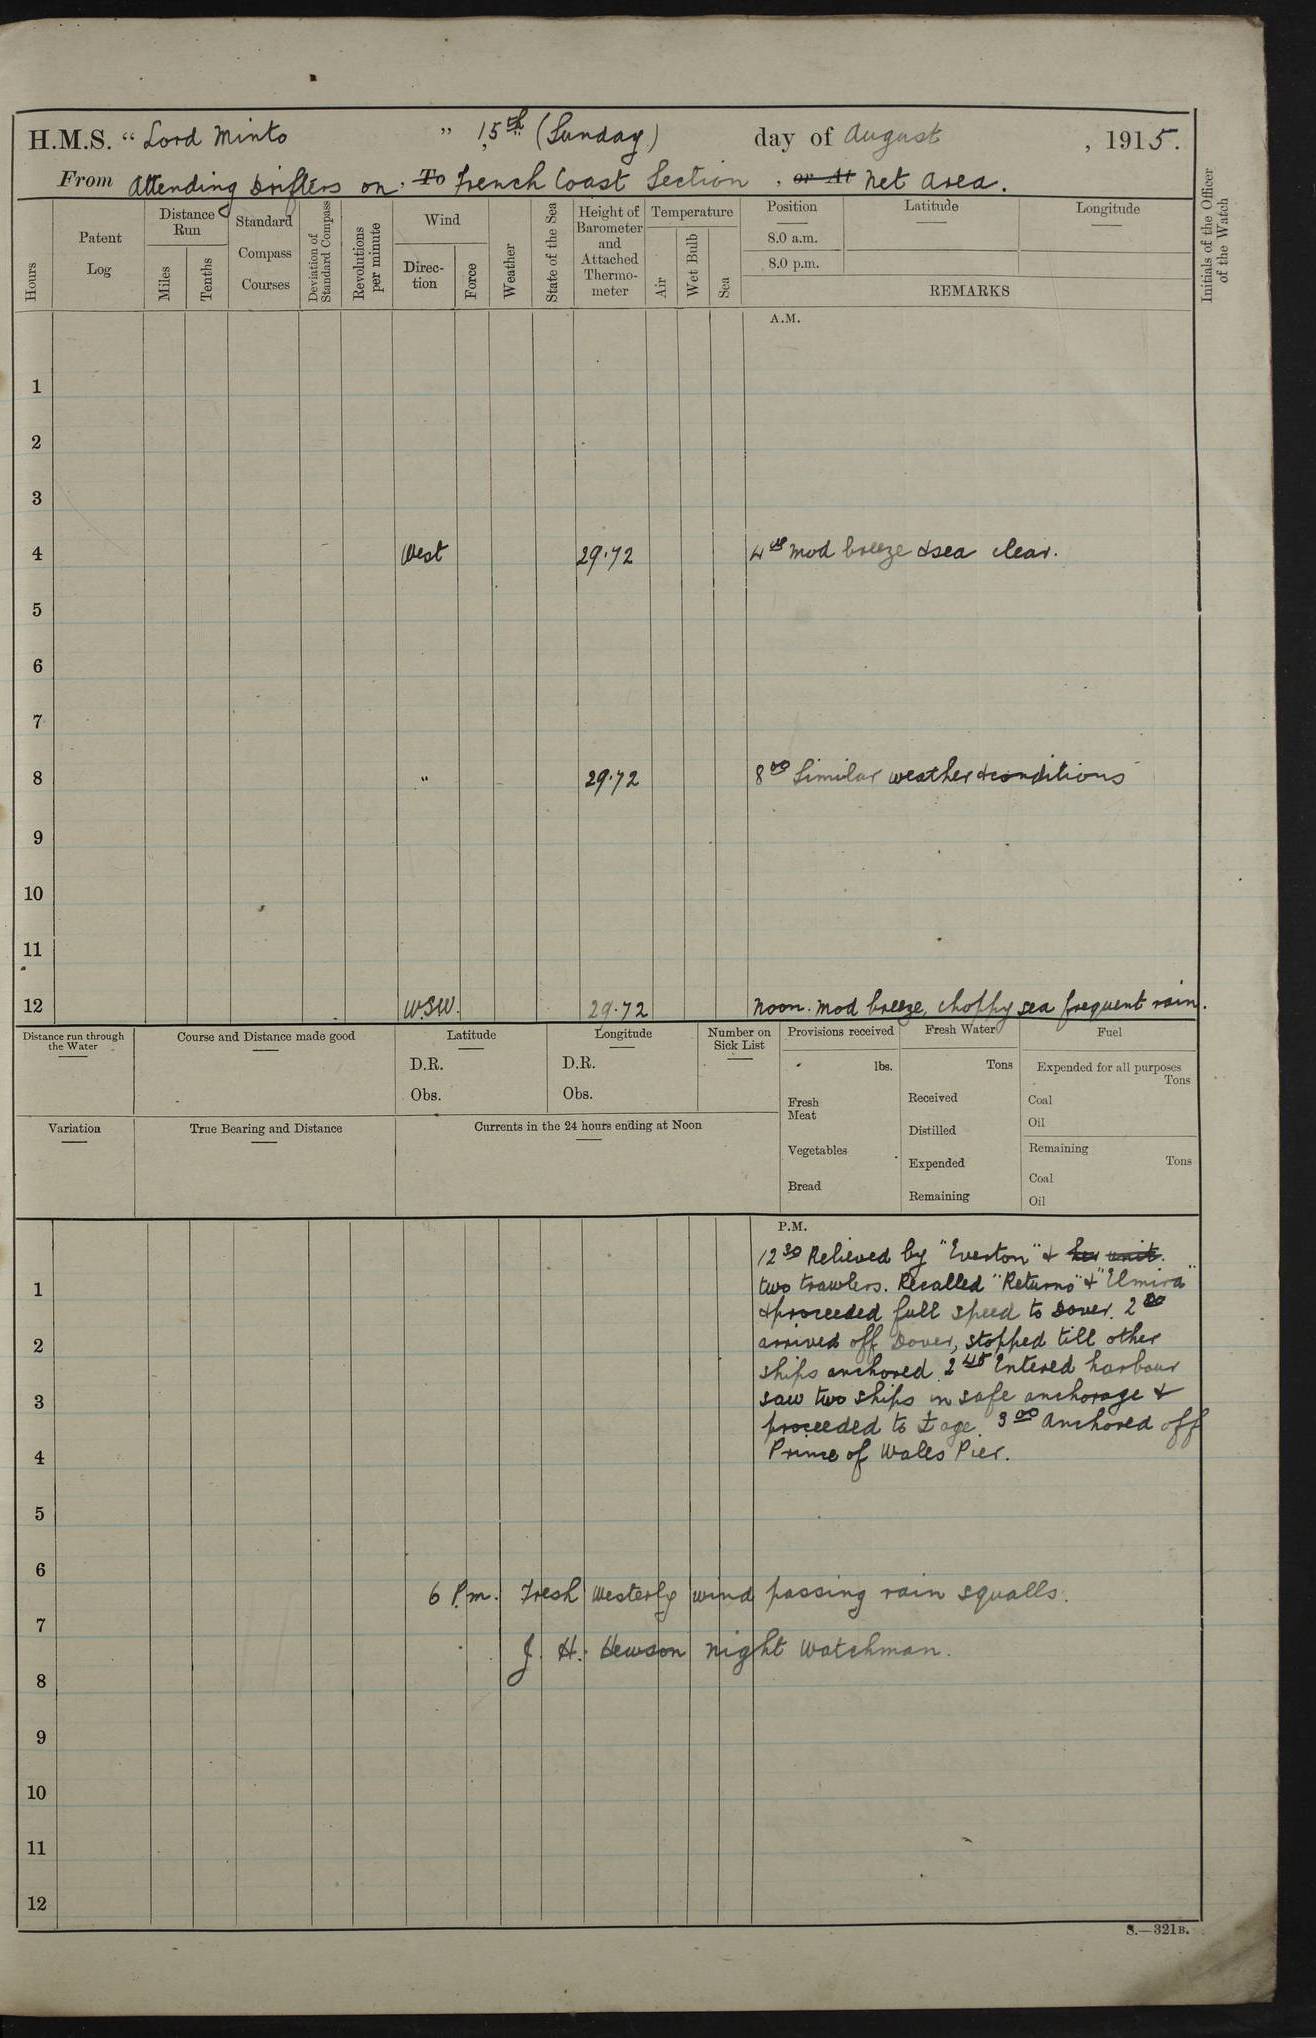 H.M.S. "Lord Minto " 15th (Sunday) day of August , 1915.
From Attending Drifters on, To French Coast Section , or At Net Area.
Hours
Patent Log
Distance Run
Miles
Tenths
Standard Compass Courses
Deviation of Standard Compass
Revolutions per minute
Wind
Direc-tion
Force
Weather
State of the Sea
Height of Barometer and Attached Thermo-meter
Temperature
Air
Wet Bulb
Sea
Position Latitude Longitude
8.0 a.m.
8.0 p.m.
REMARKS
Initials of the Officer of the Watch
A.M.
1
2
3
4 West 29.72 4 00 mod breeze & sea clear.
5
6
7
8 " 29.72 8 00 Similar weather & conditions
9
10
11
12 W.SW. 29.72 Noon. Mod breeze, choppy sea frequent rain.
Distance run through the Water
Course and Distance made good
Latitude
D.R.
Obs.
Longitude
D.R.
Obs.
Number on Sick List
Provisions received
lbs.
Fresh Meat
Vegetables
Bread
Fresh Water
Tons
Received
Distilled
Expended
Remaining
Fuel
Expended for all purposes
Tons
Coal
Oil
Remaining
Tons
Coal
Oil
Variation
True Bearing and Distance
Currents in the 24 hours ending at Noon
P.M.
12 30 Relieved by "Everton" & her unit.
1 two trawlers. Recalled "Returno" & "Elmira"
& proceeded full speed to Dover. 2 00
2 arrived off Dover, stopped till other
ships anchored. 2 45 Entered harbour
3 saw two ships in safe anchorage &
proceeded to ⚓age. 3 00 Anchored off
4 Prince of Wales Pier.
5
6
6 P.m. Fresh Westerly wind passing rain squalls.
7
J. H. Hewson night watchman.
8
9
10
11
12
S.—321B.